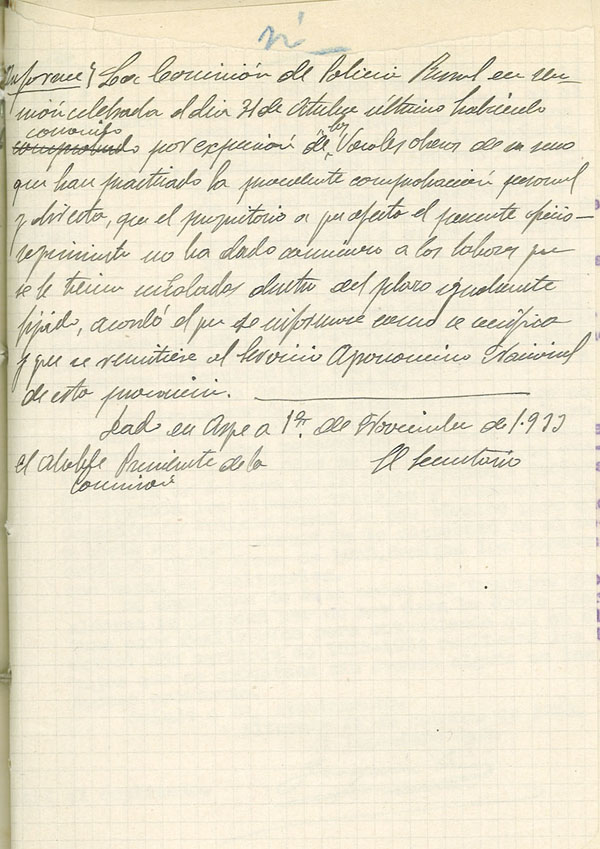 nº
Informe} La Comisión de Policia Rural en se-
sión celebrada el dia 31 de Octubre último habiendo
conocido
comprobado por expresión de los Vocales obreros de su seno
que han practicado la procedente comprobación personal
y directa, que el propietario a que afecta el presente
no ha dado comienzo a las labores que
se le tienen señaladas dentro del plazo igualmente
fijado, acordó el que se informase como se verifica
y que se remitiese al Servicio Agronomico Nacional
de esta provincia.
Dado en Aspe a 1º de Noviembre de 1.933
El Alcalde Presidente de la
Comisión
El Secretario